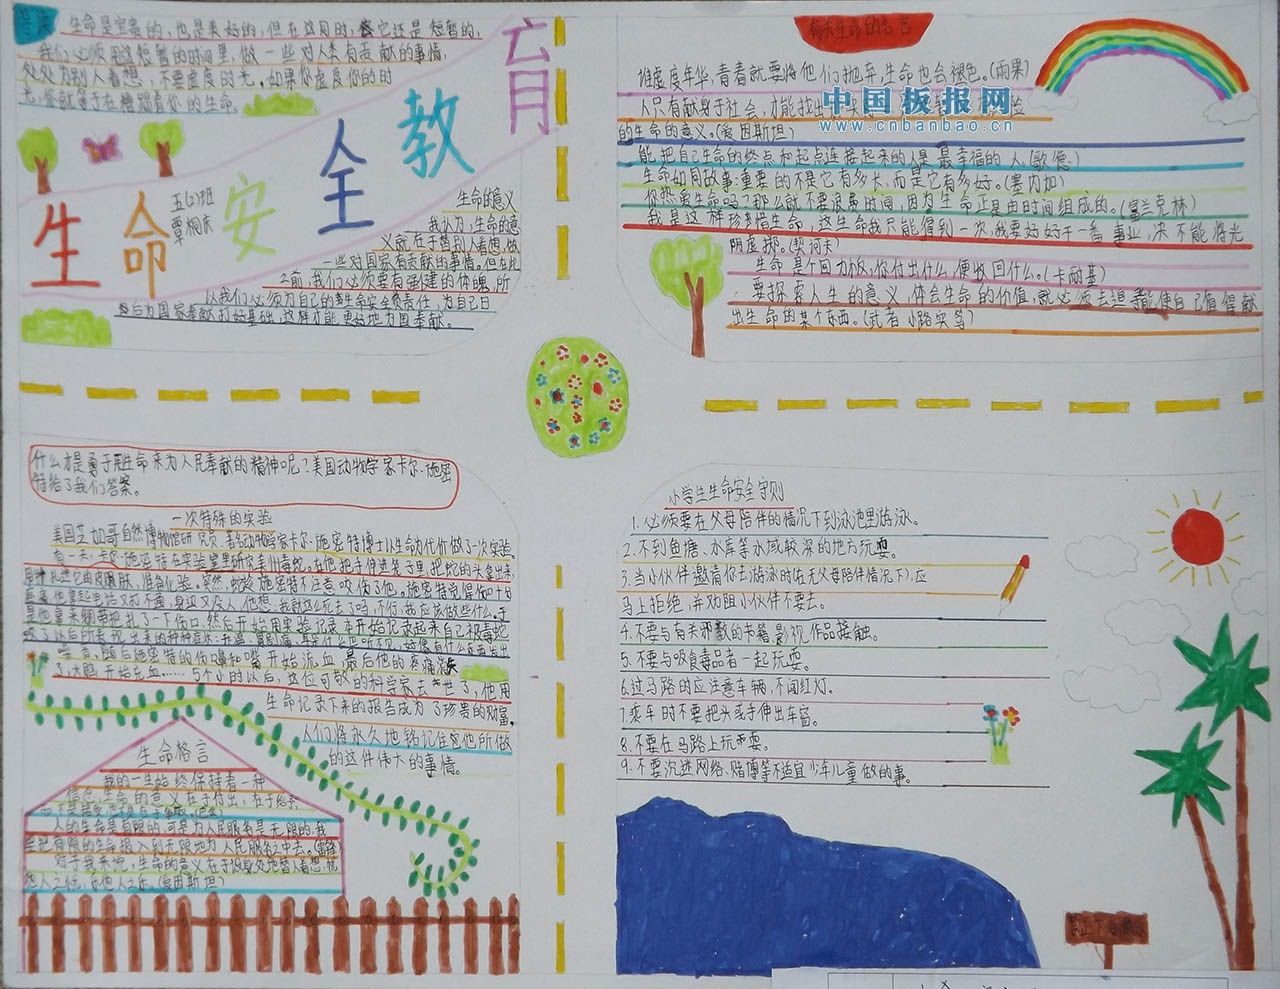 导语
生命是宝贵的,也是美好的,但在这同时,它还是短暂的,
我们必须用这短暂的时间里,做一些对人类有贡献的事情,
处处为别人着想,不要虚度时光。如果你虚度你的时
光,你就等于在糟蹋着你的生命。
生命安全教育
五(2)班
覃桐末
生命的意义
我认为,生命的意
义就在于替别人着想,做
一些对国家有贡献的事情。但在此
之前,我们必须要有强健的体魄,所
以我们必须为自己的生命安全负责任,为自己日
后为国家奉献打好基础,这样才能更好地为国奉献。
有关生命的名言
谁虚度年华,青春就要将他们抛弃,生命也会褪色。(雨果)
人只有献身于社会,才能找出
的生命的意义。(爱因斯坦)
能把自己生命的终点和起点连接起来的人是最幸福的人。(歌德)
生命如同故事:重要的不是它有多长,而是它有多好。(塞内加)
你热爱生命吗?那么就不要浪费时间,因为生命正是由时间组成的。(富兰克林)
我是这样珍惜生命,这生命我只能得到一次,我要好好干一番事业,决不能将光
阴虚掷。(契诃夫)
生命是个回力版,你付出什么,便收回什么。(卡耐基)
要探索人生的意义,体会生命的价值,就必须去追寻能使自己值得献
出生命的某个东西。(武者小路实笃)
中国板报网
www.cnbanbao.cn
什么才是勇于用生命来为人民奉献的精神呢?美国动物学家卡尔·施密
特给了我们答案。
一次特殊的实验
美国芝加哥自然博物馆研究员、著名动物学家卡尔·施密特博士以生命为代价做了一次实验。
有一天,卡尔·施密特在实验室里研究美洲毒蛇。在他把手伸进笼子里把蛇的头拿出来,
准备化验。突然,蛇趁施密特不注意咬伤了他。施密特觉得伤口十分
他拿起电话又打不通,身边又没人,他想:我就这么死去了吗,不行,我应该做些什么。于
是他拿来绷带把扎了一下伤口,然后开始用实验记录本开始记录起来自己被毒蛇
咬了以后所表现出来的种种症状:
随后施密特的伤口鼻和嘴开始流血,最后他的疼痛消失
了,大脑开始充血……5个小时以后,这位可敬的科学家去世了,他用
生命记录下来的报告成为了珍贵的财富。
人们将永久地铭记住他所做
的这件伟大的事情。
生命格言
我的一生始终保持着一种
信念,生命的意义在于付出,在于给予,
人的生命是有限的,可是为人民服务是无限的,我
要把有限的生命投入到无限地为人民服务之中去。(雷锋)
对于我来说,生命的意义在于设身处地替人着想,忧
他人之忧,乐他人之乐。(爱因斯坦)
小学生生命安全守则
1.必须要在父母陪伴的情况下到泳池里游泳。
2.不到鱼塘、水库等水域较深的地方玩耍。
3.当小伙伴邀请你去游泳时(在无父母陪伴情况下),应
马上拒绝,并劝阻小伙伴不要去。
4.不要与有关邪教的书籍、影视作品接触。
5.不要与吸食毒品者一起玩耍。
6.过马路时应注意车辆,不闯红灯。
7.乘车时不要把头或手伸出车窗。
8.不要在马路上玩耍。
9.不要沉迷网络、赌博等不适宜少年儿童做的事。